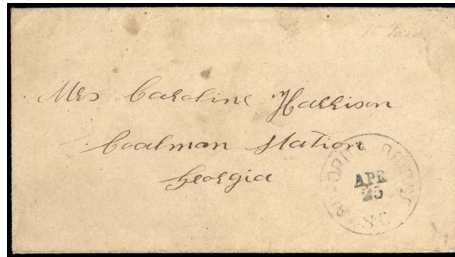 Mrs Caroline Harrison
Coalmon Station
Georgia
APR
25
N.C